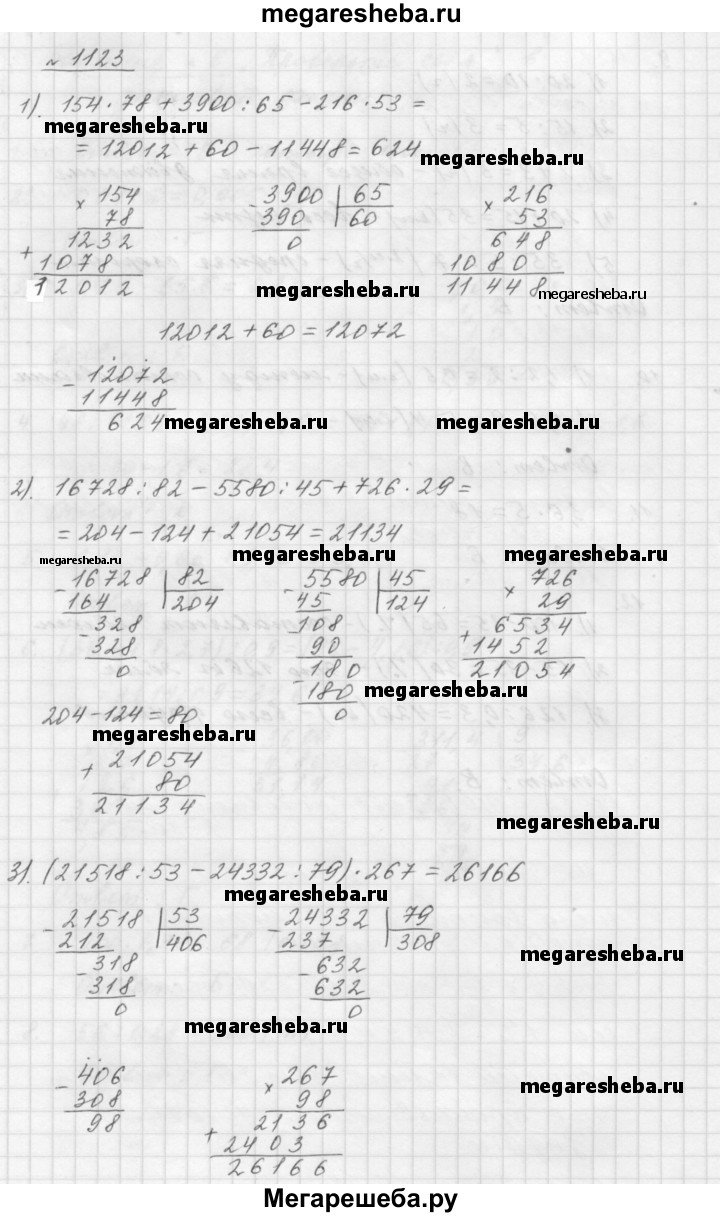 megaresheba.ru
№ 1123
1). 154·78+3900:65-216·53=
megaresheba.ru
= 12012+60-11448=624
megaresheba.ru
× 154 - 3900 65 × 216
78 390 60 53
1232 0 648
+ 1078 1080
12012 megaresheba.ru 11448 megaresheba.ru
12012+60=12072
- 12072
11448
624 megaresheba.ru
2). 16728:82-5580:45+726·29=
= 204-124+21054=21134
megaresheba.ru megaresheba.ru megaresheba.ru
- 16728 82 - 5580 45 × 726
164 204 45 124 29
- 328 - 108 6534
328 90 + 1452
0 - 180 21054
180 megaresheba.ru
204-124=80 0
megaresheba.ru
+ 21054
80
21134
megaresheba.ru
3). (21518:53-24332:79)·267=26166
megaresheba.ru
- 21518 53 - 24332 79
212 406 237 308
- 318 - 632 megaresheba.ru
318 632
0 0
megaresheba.ru
- 406 × 267
308 98 megaresheba.ru
98 2136
+ 2403
26166
Мегарешеба.ру